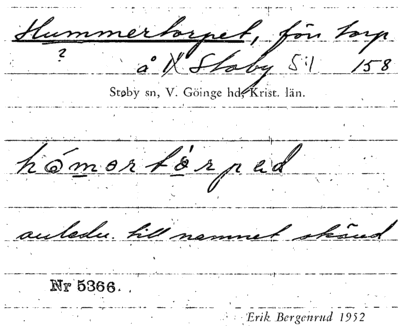 Hummertorpet, förr torp
?
å Stoby 5:1 158
Stoby sn, V. Göinge hd, Krist. län.
hómortòrpəd
anledn. till namnet okänd
Nr 5366.
Erik Bergenrud 1952